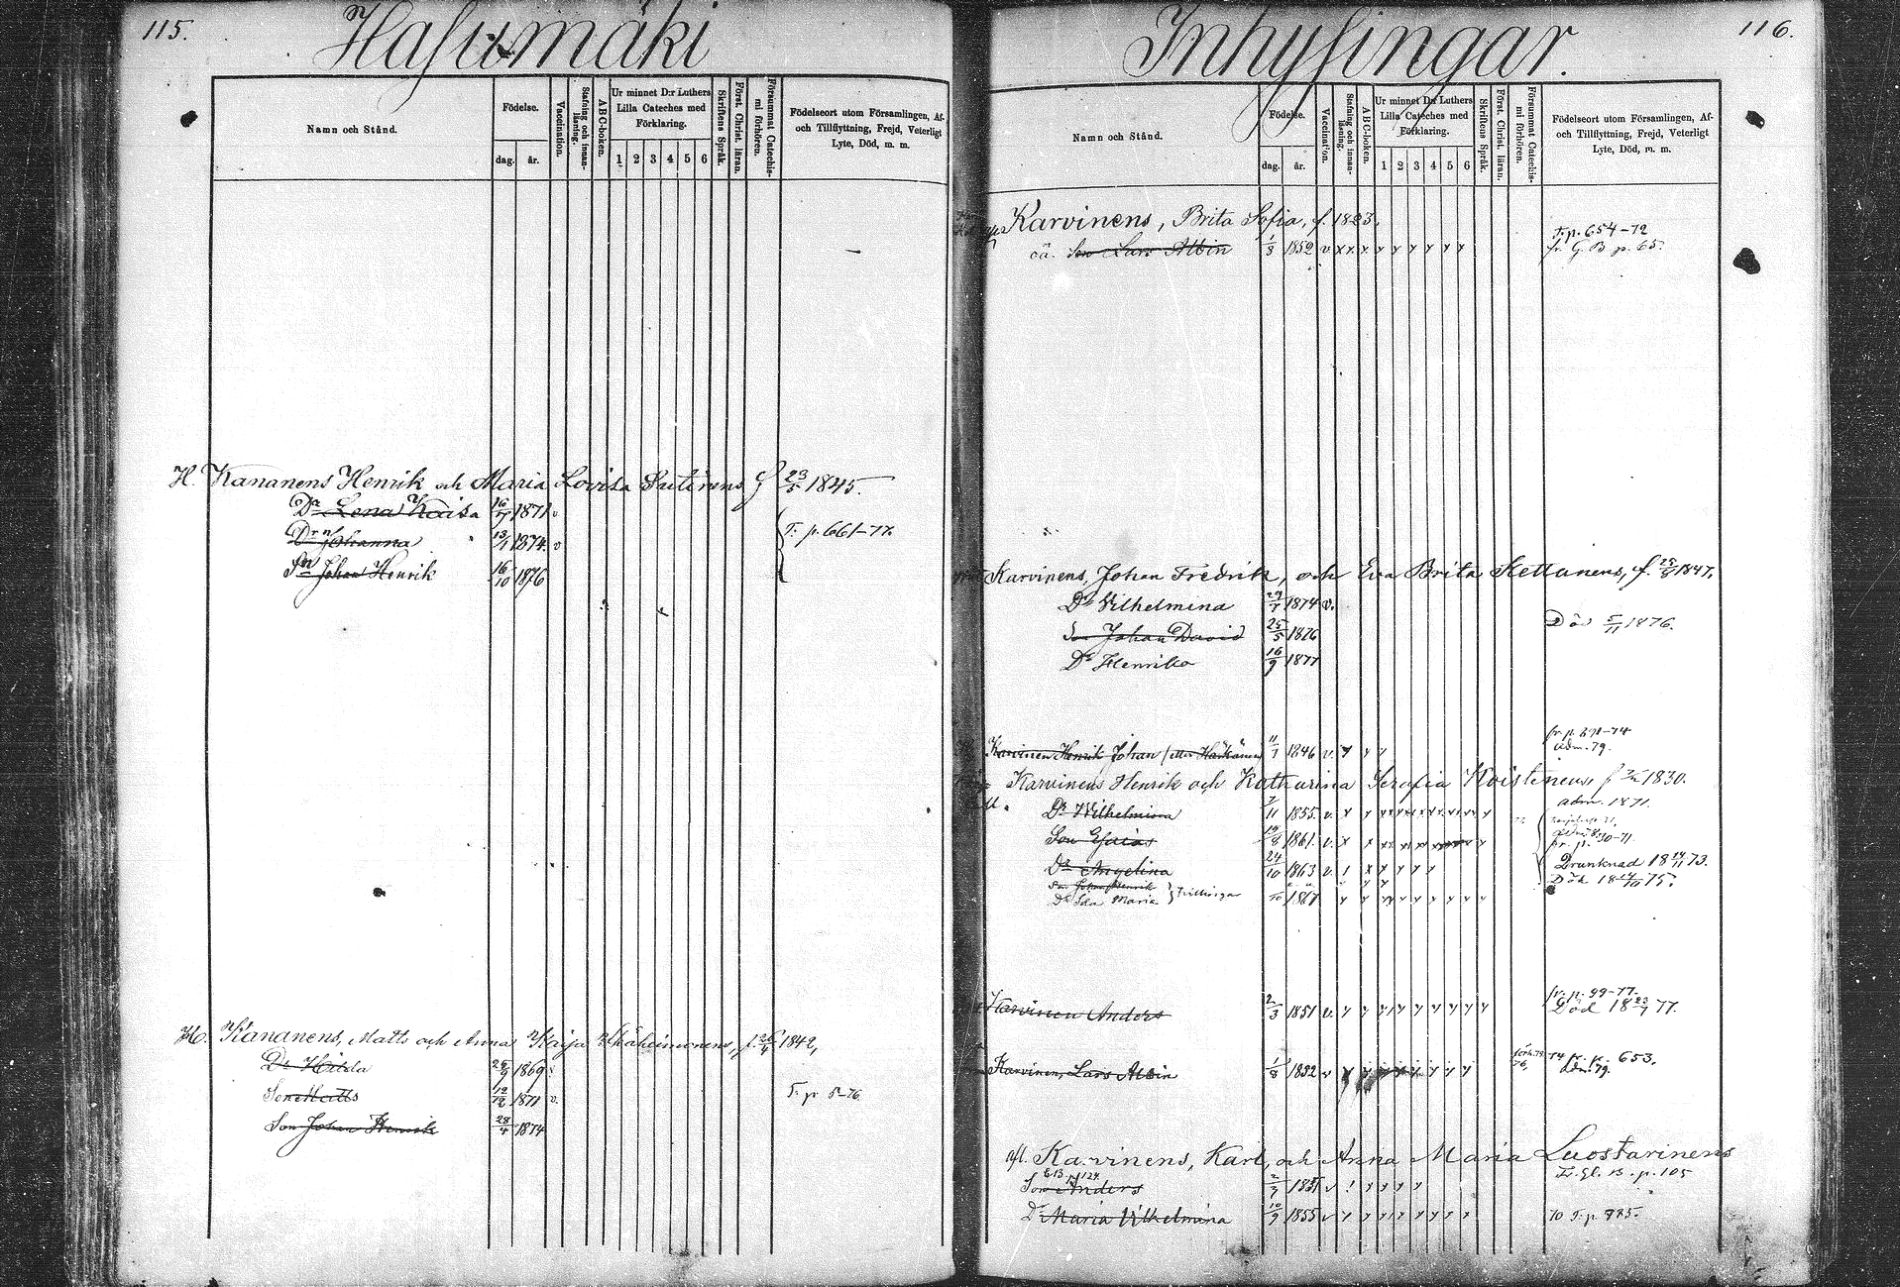 115.
Hasumäki
Namn och Stånd.
Födelse.
dag.
år.
Vaccination.
Stafning och innanläsning.
ABC-boken.
Ur minnet D:r Luthers Lilla Cateches med Förklaring.
1 2 3 4 5 6
Skriftens Språk.
Först. Christ. läran.
Försummat Catechismi förhören.
Födelseort utom Församlingen, Af- och Tillflyttning, Frejd, Veterligt Lyte, Död, m. m.
H. Kananens Henrik och Maria Lovisa Suutarinens f 23/5 1845.
Dr Lena Kaisa 1871 v
Dr Johanna 13/1 1874. v
T. p. 661-77.
Sn Johan Henrik 16/10 1876
H. Kananens, Matts och Anna Kaija f. 26/4 1842,
Dr Hilda 1869
Son Matts 12/12 1871 v.
T. p 5-76
Son Johan Henrik 28/4 1874
116.
Inhysingar.
Namn och Stånd.
Födelse.
dag.
år.
Vaccination.
Stafning och innanläsning.
ABC-boken.
Ur minnet D:r Luthers Lilla Cateches med Förklaring.
1 2 3 4 5 6
Skriftens Språk.
Först. Christ. läran.
Försummat Catechismi förhören.
Födelseort utom Församlingen, Af- och Tillflyttning, Frejd, Veterligt Lyte, Död, m. m.
Karvinens, Brita Sofia, f. 1823.
T. p. 654-72
oä. Son Lars Albin 1/8 1852 v
fr. G. B. p. 65.
Karvinens, Johan Fredrik, och Eva Brita Kettunens, f. 1847.
Dr Vilhelmina 1874 v.
Son Johan David 25/5 1876
Död 5/11 1876.
Dr Henrika 16/9 1877
fr. p. 891-74
Karvinen Henrik Johan 1846 v.
adm. 79.
Karvinens Henrik och Katharina Serafia Koistinens f 1830.
adm. 1871.
Dr Wilhelmina 1855. v.
Son Esaias 1861. v.
Dr Angelina 24/10 1863 v.
Drunknad 18 14/11 73.
Son Johan Henrik
Dr Ida Maria } Tvillingar 1867
Död 18 75.
fr. p. 99-77.
Karvinen Anders 2/3 1851 v.
Död 18 77.
Karvinen, Lars Albin 1/8 1852 v
fr. p. 653.
adm. 79.
afl. Karvinens, Karl, och Anna Maria Luostarinens
Son Anders 1851 v
Dr Maria Vilhelmina 10/9 1855 v